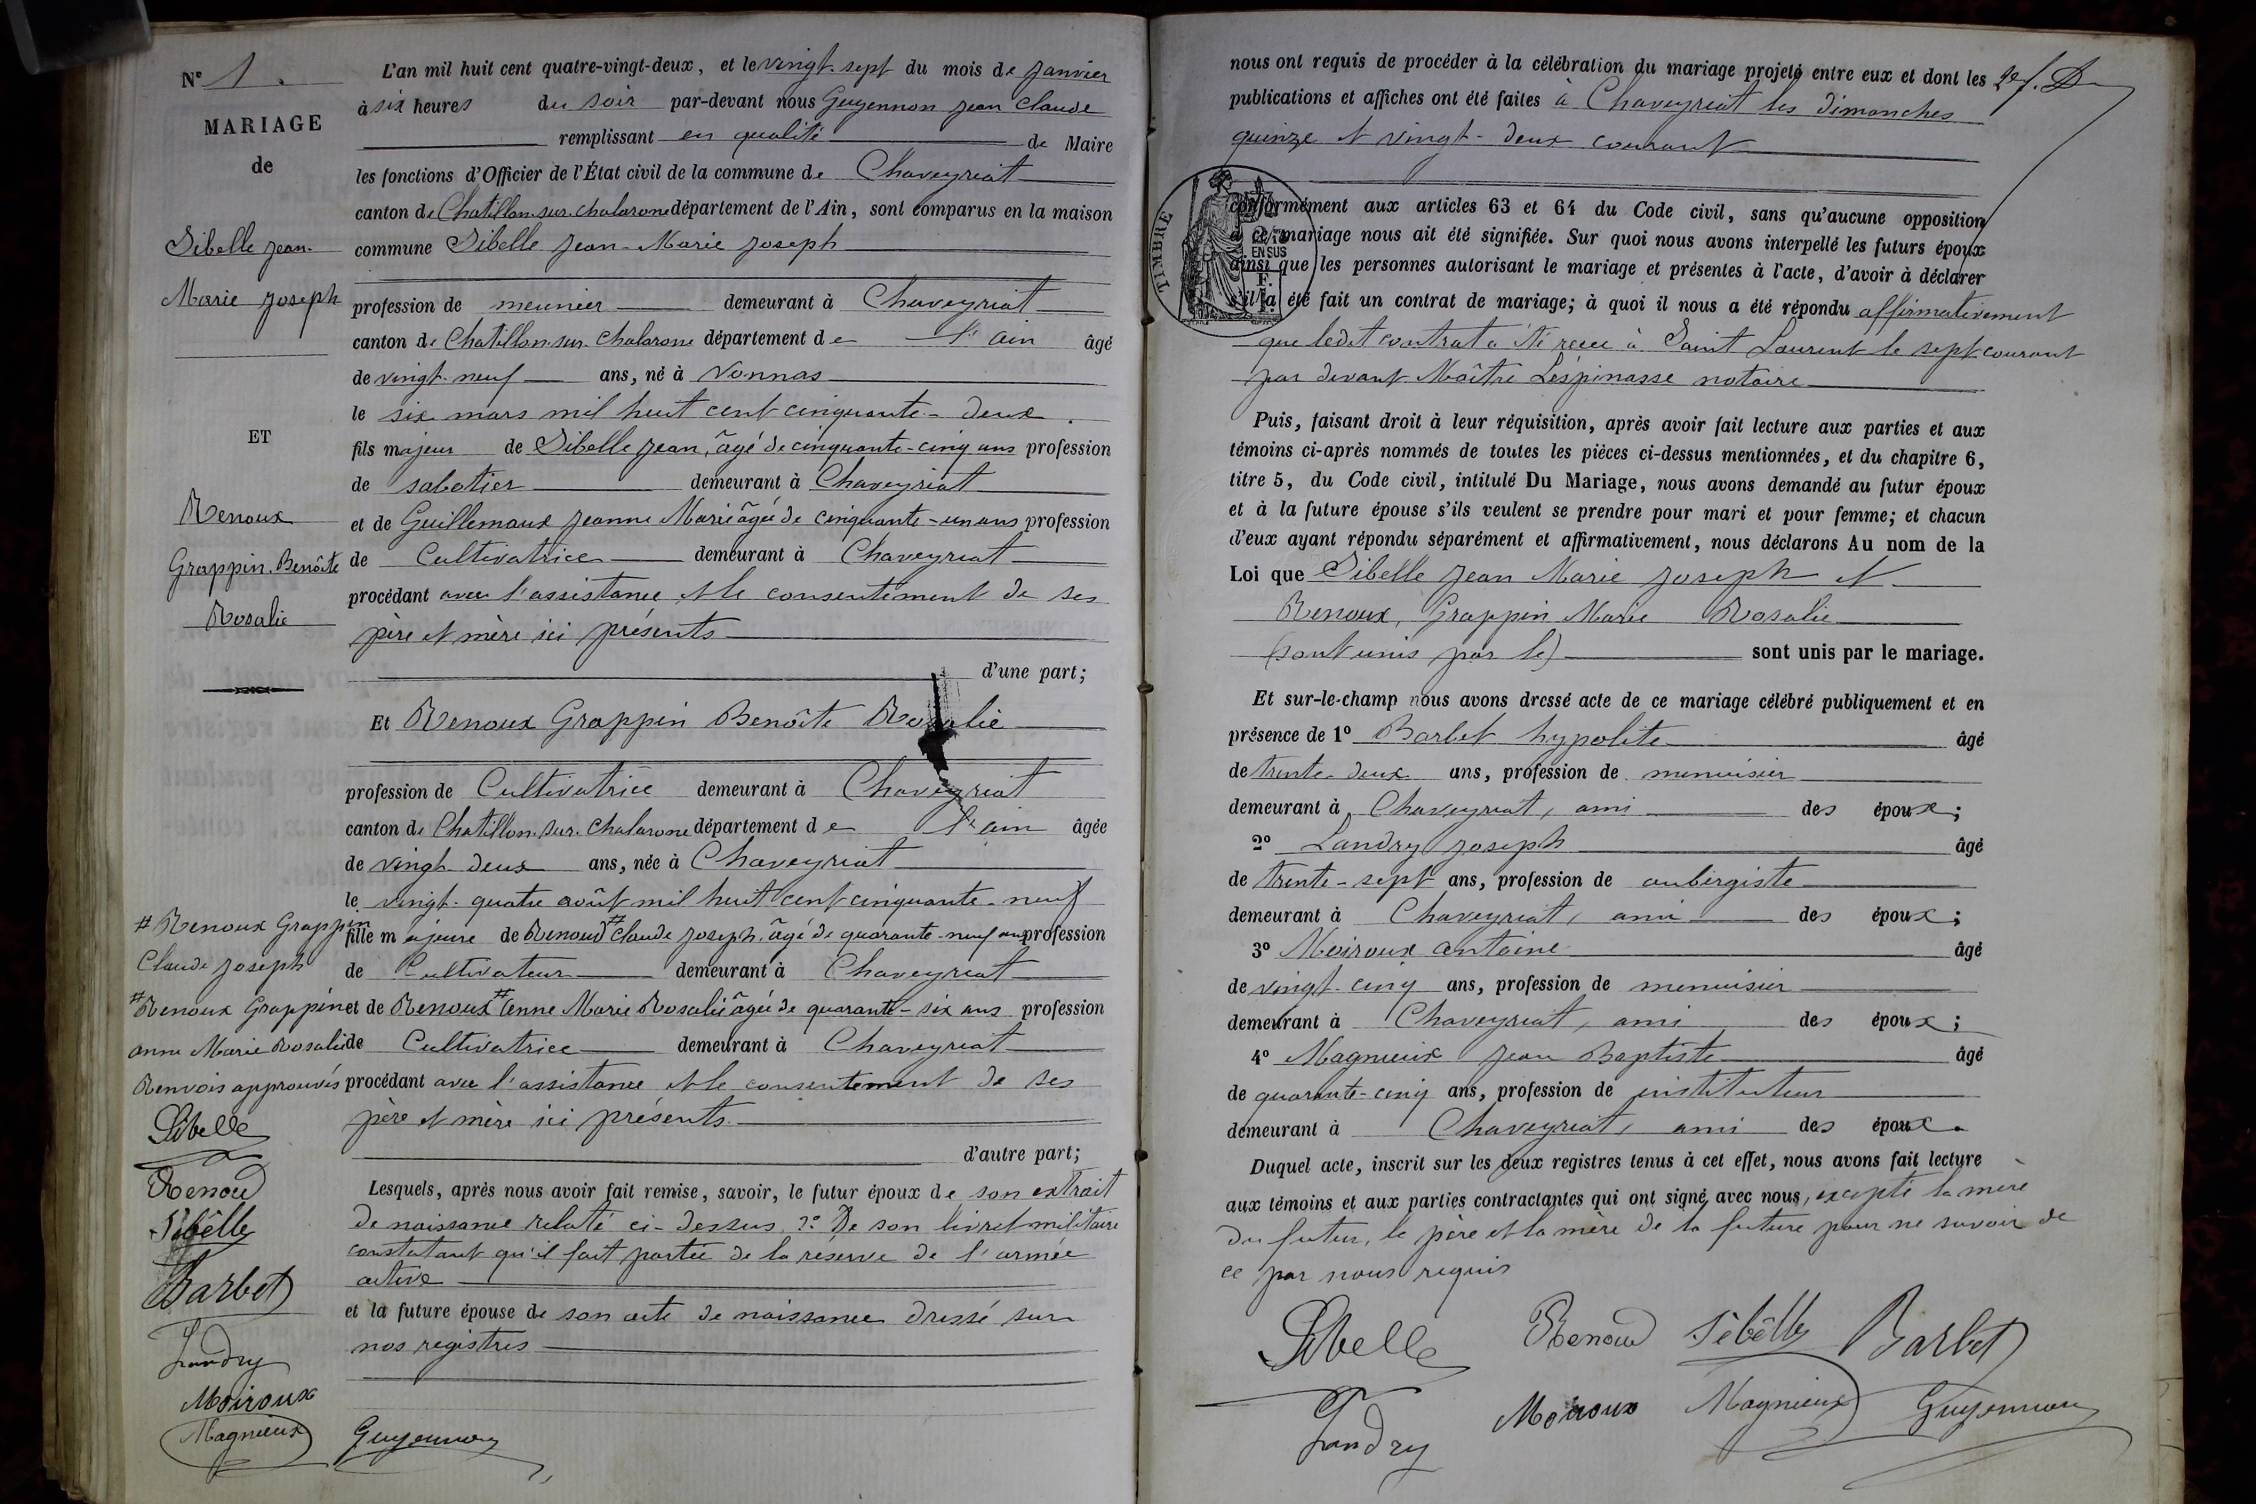 N° 1.
MARIAGE
de
Sibelle Jean-
Marie Joseph
ET
Renoux
Grappin Benôite
Rosalie
# Renoux Grappin
Claude Joseph
# Renoux Grappin
anne Marie Rosalie
Renvois approuvés
Sibelle
Renoud
Sibêlle
Barbet
Landry
Moiroux
Magnieux
Guyennon
L'an mil huit cent quatre-vingt-deux, et le vingt-sept du mois de Janvier
à six heures du soir par-devant nous Guyennon Jean Claude
remplissant en qualité de Maire
les fonctions d'Officier de l'État civil de la commune de Chaveyriat
canton de Chatillon-sur-chalaronne département de l'Ain, sont comparus en la maison
commune Sibelle Jean-Marie Joseph
profession de meunier demeurant à Chaveyriat
canton de Chatillon-sur-Chalaronne département de l'ain âgé
de vingt-neuf ans, né à Vonnas
le six mars mil huit cent cinquante-deux.
fils majeur de Sibelle Jean, âgé de cinquante-cinq ans profession
de sabotier demeurant à Chaveyriat
et de Guillemaux Jeanne Marie âgée de cinquante-un ans profession
de Cultivatrice demeurant à Chaveyriat
procédant avec l'assistance et le consentement de ses
père et mère ici présents
d'une part;
Et Renoux Grappin Benôite Rosalie
profession de Cultivatrice demeurant à Chaveyriat
canton de Chatillon-sur-Chalaronne département de l'ain âgée
de vingt-deux ans, née à Chaveyriat
le vingt-quatre août mil huit cent cinquante-neuf
fille majeure de Renoud # Claude Joseph, âgé de quarante-neuf ans profession
de Cultivateur demeurant à Chaveyriat
et de Renoux # anne Marie Rosalie âgée de quarante-six ans profession
de Cultivatrice demeurant à Chaveyriat
procédant avec l'assistance et le consentement de ses
père et mère ici présents.
d'autre part;
Lesquels, après nous avoir fait remise, savoir, le futur époux de son extrait
de naissance relaté ci-dessus, 2° De son livret militaire
constatant qu'il fait partie de la réserve de l'armée
active
et la future épouse de son acte de naissance dressé sur
nos registres
nous ont requis de procéder à la célébration du mariage projeté entre eux et dont les
publications et affiches ont été faites à Chaveyriat les dimanches
quinze et vingt-deux courant
TIMBRE
EN SUS
conformément aux articles 63 et 64 du Code civil, sans qu'aucune opposition
à ce mariage nous ait été signifiée. Sur quoi nous avons interpellé les futurs époux
ainsi que les personnes autorisant le mariage et présentes à l'acte, d'avoir à déclarer
s'il a été fait un contrat de mariage; à quoi il nous a été répondu affirmativement
que ledit contrat a été recu à Saint Laurent le sept courant
par devant Maître Lespinasse notaire
Puis, faisant droit à leur réquisition, après avoir fait lecture aux parties et aux
témoins ci-après nommés de toutes les pièces ci-dessus mentionnées, et du chapitre 6,
titre 5, du Code civil, intitulé Du Mariage, nous avons demandé au futur époux
et à la future épouse s'ils veulent se prendre pour mari et pour femme; et chacun
d'eux ayant répondu séparément et affirmativement, nous déclarons Au nom de la
Loi que Sibelle Jean Marie Joseph et
Renoux, Grappin Marie Rosalie
(sont unis par le) sont unis par le mariage.
Et sur-le-champ nous avons dressé acte de ce mariage célébré publiquement et en
présence de 1° Barbet hypolite âgé
de trente-deux ans, profession de menuisier
demeurant à Chaveyriat, ami des époux;
2° Landry Joseph âgé
de trente-sept ans, profession de aubergiste
demeurant à Chaveyriat, ami des époux;
3° Moiroux antoine âgé
de vingt-cinq ans, profession de menuisier
demeurant à Chaveyriat, ami des époux;
4° Magnieux Jean Baptiste âgé
de quarante-cinq ans, profession de instituteur
demeurant à Chaveyriat, ami des époux.
Duquel acte, inscrit sur les deux registres tenus à cet effet, nous avons fait lecture
aux témoins et aux parties contractantes qui ont signé avec nous, excepté la mère
du futur, le père et la mère de la future pour ne savoir de
ce par nous requis
Sibelle Renoud Sibêlle Barbet
Landry Moiroux Magnieux Guyennon